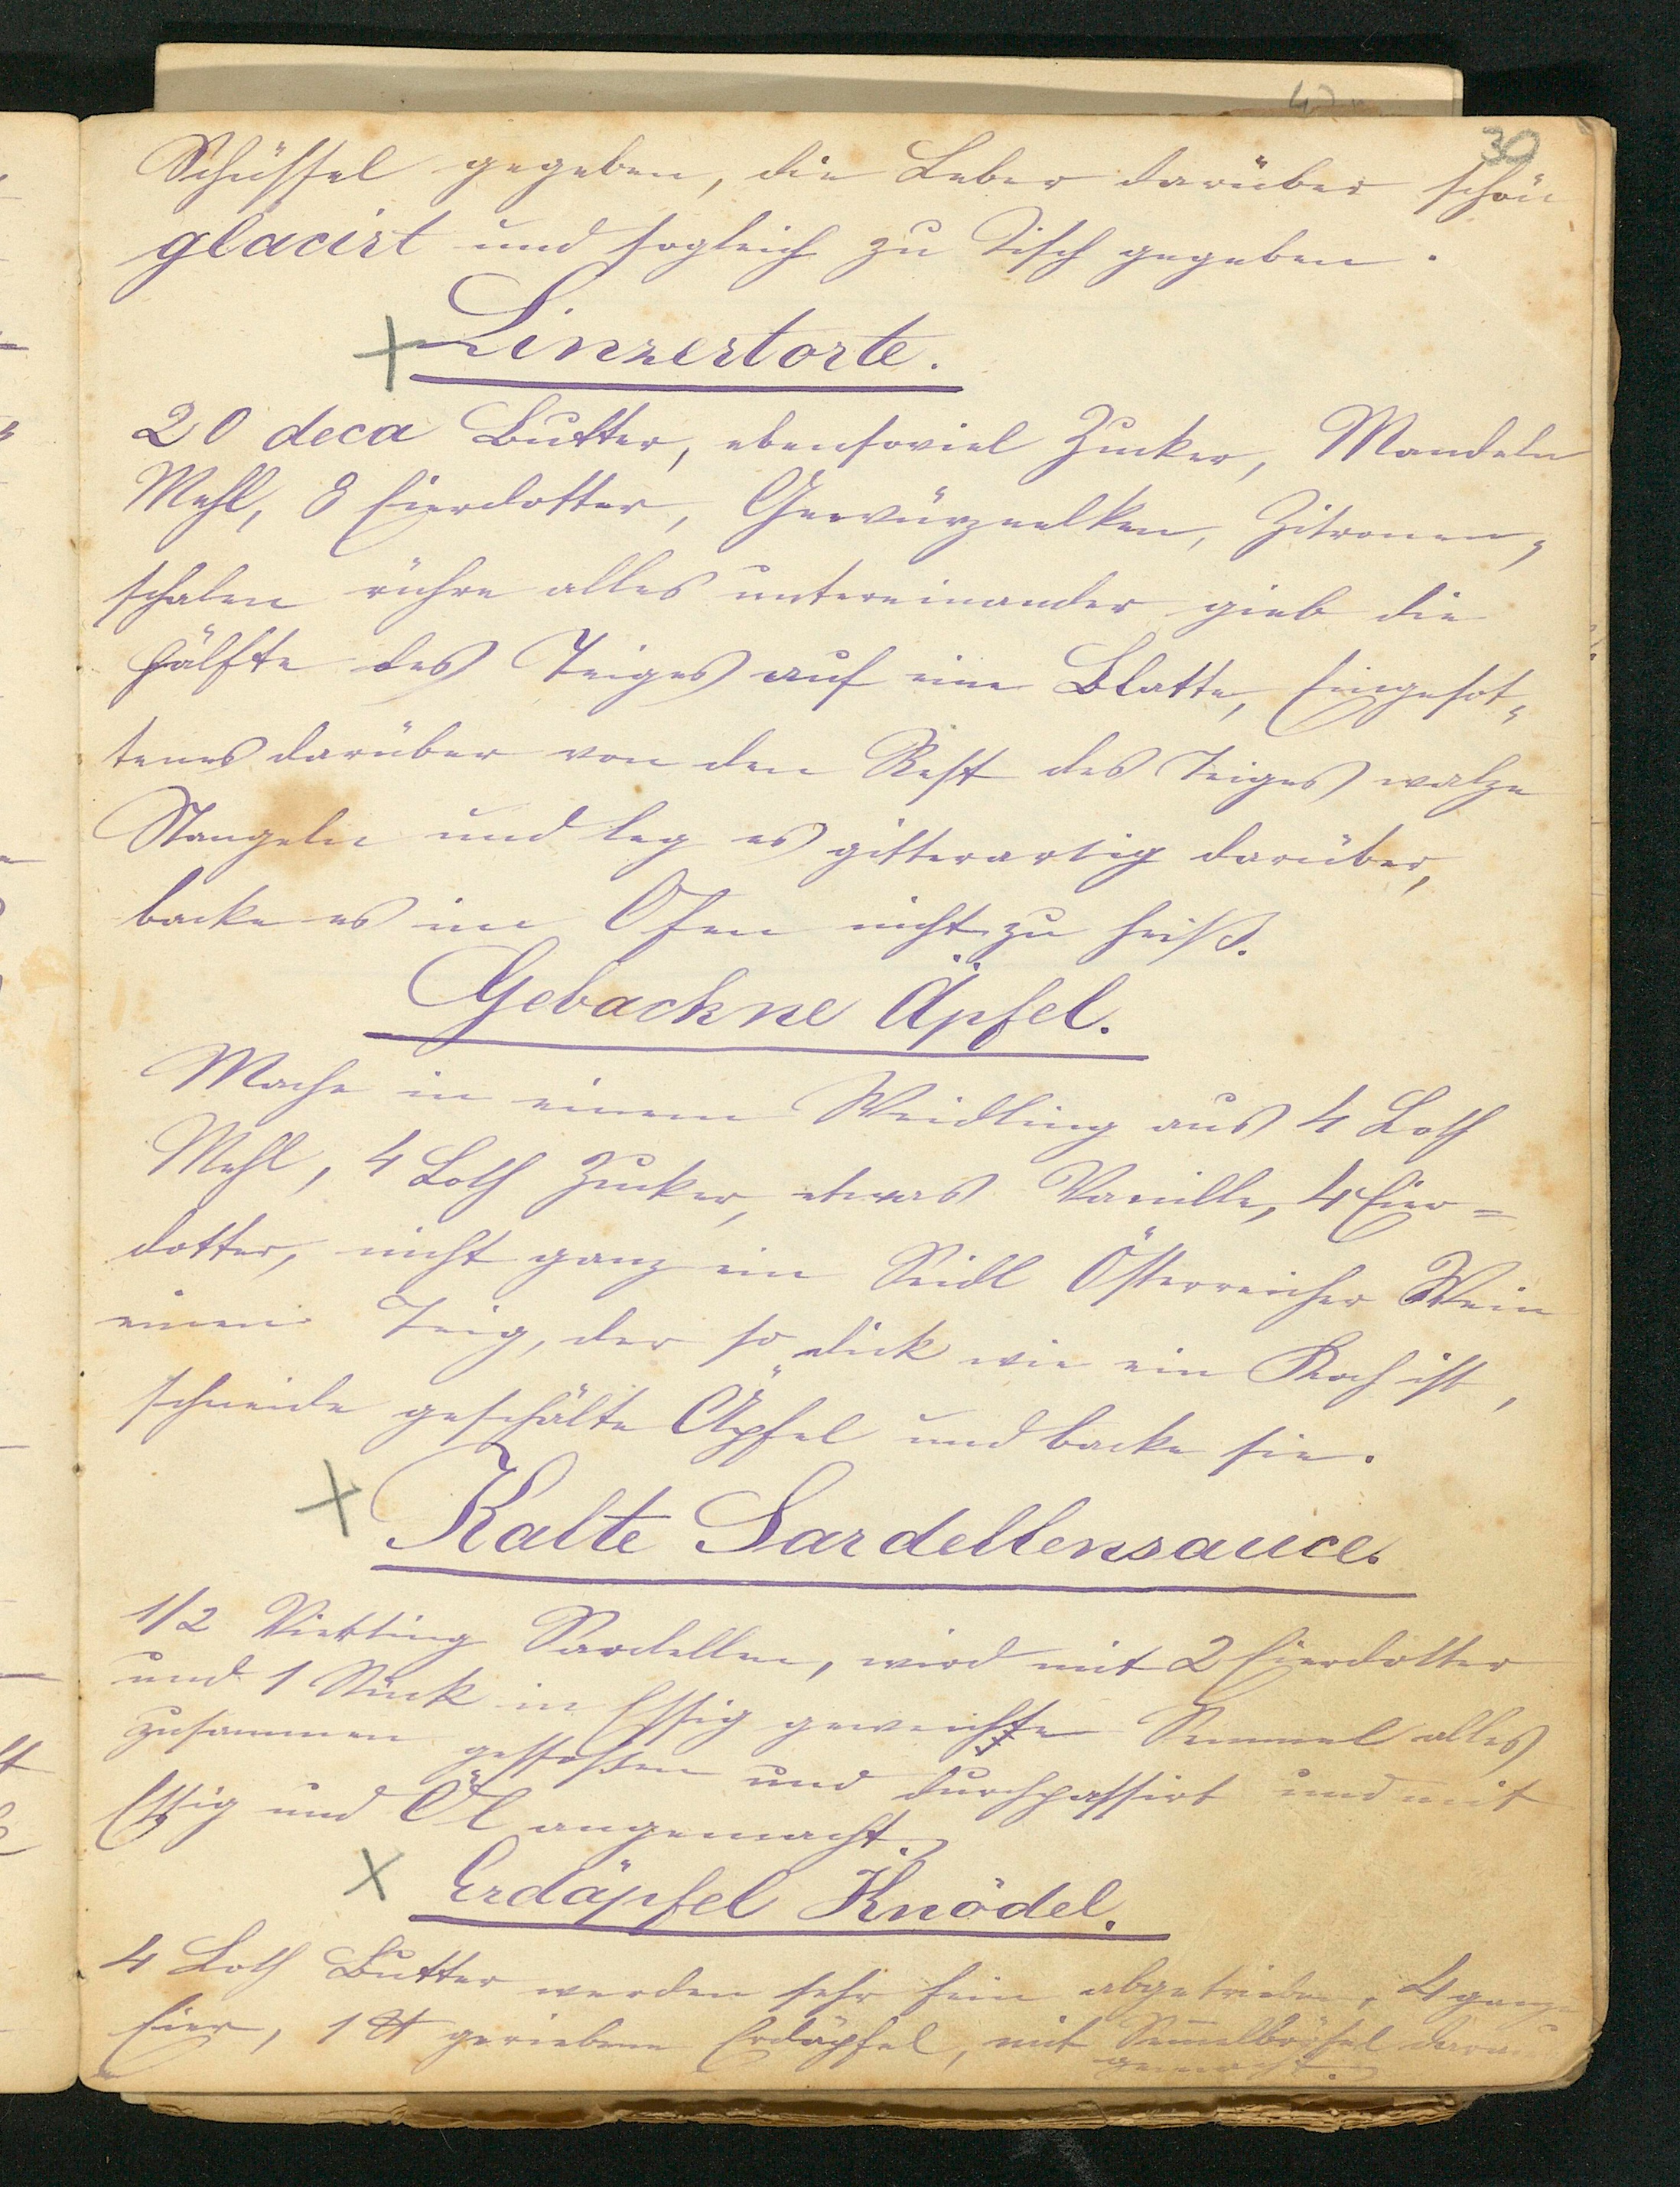 30
Schüssel gegeben, die Leber darüber schön
glacirt und sogleich zu Tisch gegeben.
Linzertorte.
20 deca Butter, ebensoviel Zucker, Mandeln
Mehl, 8 Eierdotter, Gewürznelken, Zitronen„
schalen rühre alles untereinander gieb die
Hälfte des Teiges auf eine Blatte, Eingesot„
tenes darüber von den Rest des Teiges walze
Stangeln und leg es gitterartig darüber,
backe es im Ofen nicht zu heiß.
Gebackne Äpfel.
Mache in einem Weidling aus 4 Loth
Mehl, 4 Loth Zucker, etwas Vanille, 4 Eier=
dotter, nicht ganz ein Seidl Österreicher Wein
einen Teig, der so dick wie ein Koch ist,
schneide geschälte Äpfel und backe sie.
Kalte Sardellensauce.
1/2 Viertling Sardellen, wird mit 2 Eierdotter
und 1 Stück in Essig geweichte Semmel alles
zusammen gestoßen und durchpassirt und mit
Essig und Öl angemacht.
Erdäpfel Knödel.
4 Loth Butter werden sehr fein abgetrieben, 4 ganze
Eier, 1 ℔ geriebene Erdäpfel, mit Sem̅elbrösel daraus
gemacht.